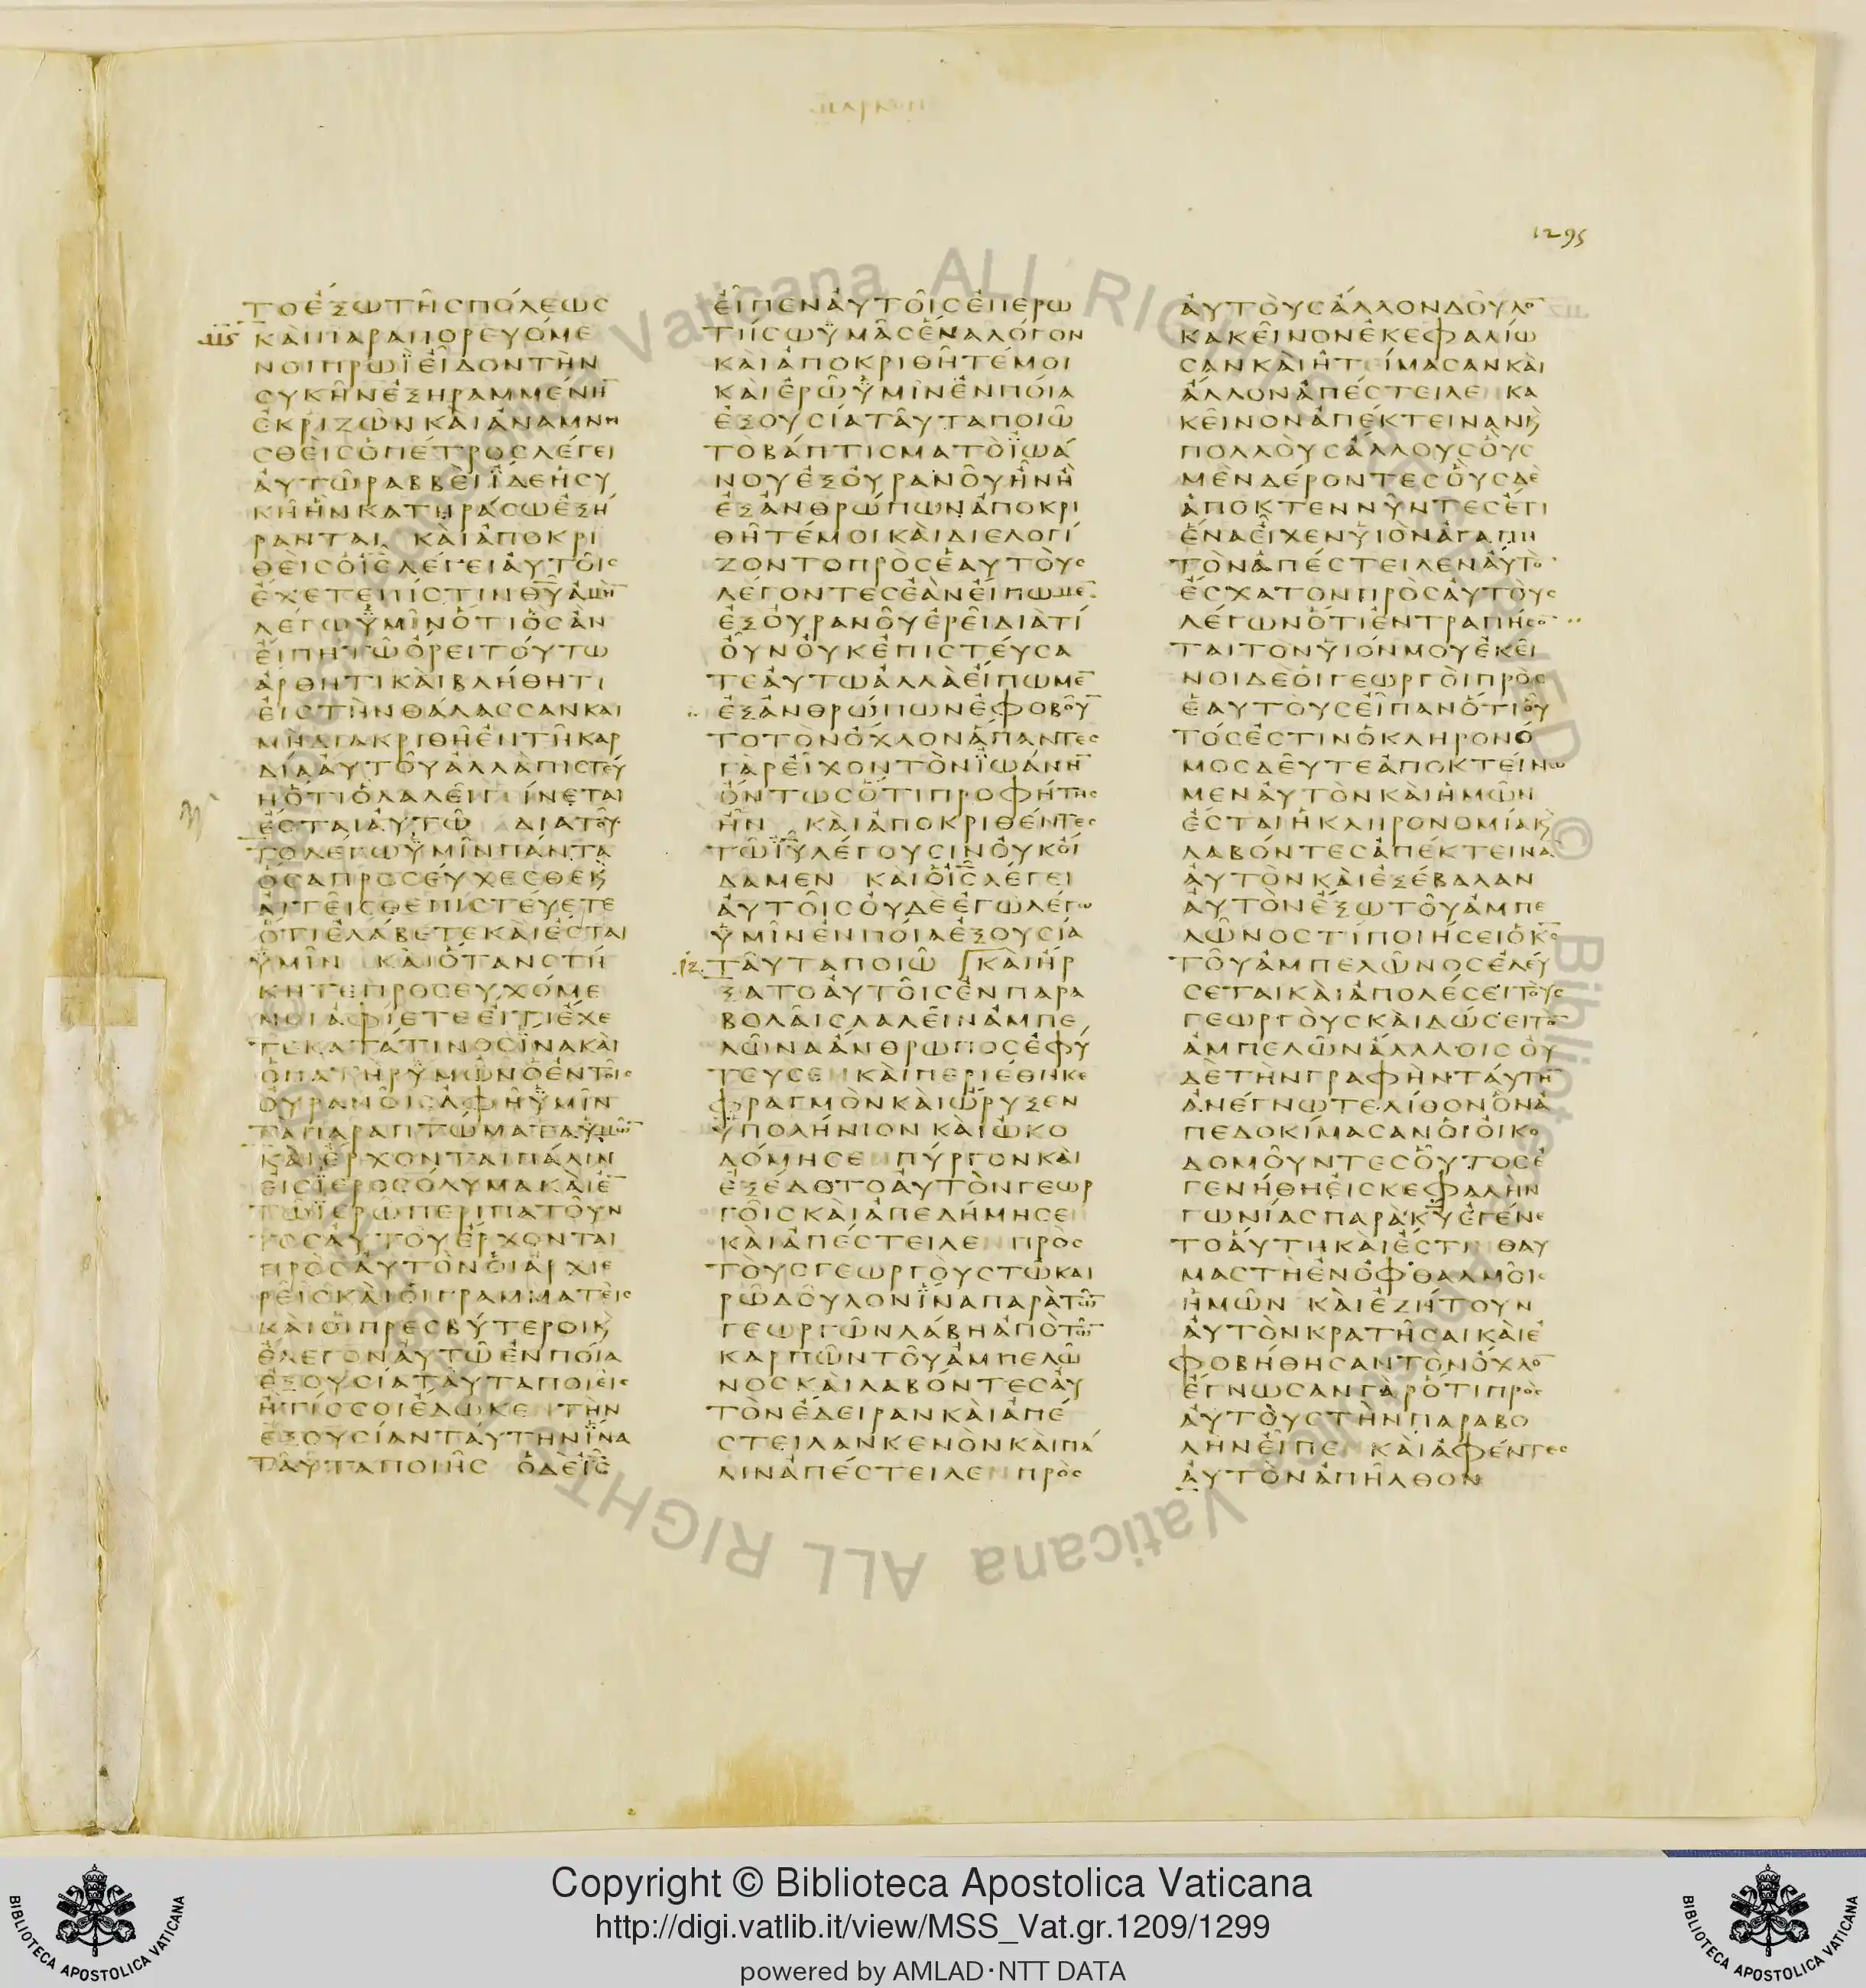 ΜΑΡΚΟΝ
1295
ΤΟΕΞΩΤΗСΠΟΛΕΩС
ΚΑΙΠΑΡΑΠΟΡΕΥΟΜΕ
ΝΟΙΠΡΩΪΕΙΔΟΝΤΗΝ
СΥΚΗΝΕΞΗΡΑΜΜΕΝΗ̅
ΕΚΡΙΖΩΝΚΑΙΑΝΑΜΝΗ
СΘΕΙСΟΠΕΤΡΟСΛΕΓΕΙ
ΑΥΤΩΡΑΒΒΕΙΪΔΕΗСΥ
ΚΗΗΝΚΑΤΗΡΑСΩΕΞΗ
ΡΑΝΤΑΙ ΚΑΙΑΠΟΚΡΙ
ΘΕΙСΟΙ̅С̅ΛΕΓΕΙΑΥΤΟΙС
ΕΧΕΤΕΠΙСΤΙΝΘ̅Υ̅ΑΜΗ̅
ΛΕΓΩΫΜΙΝΟΤΙΟСΑΝ
ΕΙΠΗΤΩΟΡΕΙΤΟΥΤΩ
ΑΡΘΗΤΙΚΑΙΒΛΗΘΗΤΙ
ΕΙСΤΗΝΘΑΛΑССΑΝΚΑΙ
ΜΗΔΙΑΚΡΙΘΗΕΝΤΗΚΑΡ
ΔΙΑΑΥΤΟΥΑΛΛΑΠΙСΤΕΥ
ΗΟΤΙΟΛΑΛΕΙΓΕΙΝΕΤΑΙ
ΕСΤΑΙΑΥΤΩ ΔΙΑΤΟΥ
ΤΟΛΕΓΩΫΜΙΝΠΑΝΤΑ
ΟСΑΠΡΟСΕΥΧΕСΘΕϗ
ΑΙΤΕΙСΘΕΠΙСΤΕΥΕΤΕ
ΟΤΙΕΛΑΒΕΤΕΚΑΙΕСΤΑΙ
ΫΜΙΝ ΚΑΙΟΤΑΝСΤΗ
ΚΗΤΕΠΡΟСΕΥΧΟΜΕ
ΝΟΙΑΦΙΕΤΕΕΙΤΙΕΧΕ
ΤΕΚΑΤΑΤΙΝΟСΪΝΑΚΑΙ
ΟΠΑΤΗΡΫΜΩΝΟΕΝΤΟΙС
ΟΥΡΑΝΟΙСΑΦΗΫΜΙΝ
ΤΑΠΑΡΑΠΤΩΜΑΤΑΫΜΩ̅
ΚΑΙΕΡΧΟΝΤΑΙΠΑΛΙΝ
ΕΙСΪΕΡΟСΟΛΥΜΑΚΑΙΕ̅
ΤΩΪΕΡΩΠΕΡΙΠΑΤΟΥΝ
ΤΟСΑΥΤΟΥΕΡΧΟΝΤΑΙ
ΠΡΟСΑΥΤΟΝΟΙΑΡΧΙΕ
ΡΕΙСΚΑΙΟΙΓΡΑΜΜΑΤΕΙС
ΚΑΙΟΙΠΡΕСΒΥΤΕΡΟΙϗ
ΕΛΕΓΟΝΑΥΤΩΕΝΠΟΙΑ
ΕΞΟΥСΙΑΤΑΥΤΑΠΟΙΕΙС
ΗΤΙССΟΙΕΔΩΚΕΝΤΗΝ
ΕΞΟΥСΙΑΝΤΑΥΤΗΝΪΝΑ
ΤΑΥΤΑΠΟΙΗС ΟΔΕΙ̅С̅
ΕΙΠΕΝΑΥΤΟΙСΕΠΕΡΩ
ΤΗСΩΫΜΑСΕΝΑΛΟΓΟΝ
ΚΑΙΑΠΟΚΡΙΘΗΤΕΜΟΙ
ΚΑΙΕΡΩΫΜΙΝΕΝΠΟΙΑ
ΕΞΟΥСΙΑΤΑΥΤΑΠΟΙΩ
ΤΟΒΑΠΤΙСΜΑΤΟΪΩΑ
ΝΟΥΕΞΟΥΡΑΝΟΥΗΝΗ
ΕΞΑΝΘΡΩΠΩΝΑΠΟΚΡΙ
ΘΗΤΕΜΟΙΚΑΙΔΙΕΛΟΓΙ
ΖΟΝΤΟΠΡΟСΕΑΥΤΟΥС
ΛΕΓΟΝΤΕСΕΑΝΕΙΠΩΜΕ̅
ΕΞΟΥΡΑΝΟΥΕΡΕΙΔΙΑΤΙ
ΟΥΝΟΥΚΕΠΙСΤΕΥСΑ
ΤΕΑΥΤΩΑΛΛΑΕΙΠΩΜΕ̅
ΕΞΑΝΘΡΩΠΩΝΕΦΟΒΟΥ̅
ΤΟΤΟΝΟΧΛΟΝΑΠΑΝΤΕС
ΓΑΡΕΙΧΟΝΤΟΝΪΩΑΝΗ̅
ΟΝΤΩСΟΤΙΠΡΟΦΗΤΗС
ΗΝ ΚΑΙΑΠΟΚΡΙΘΕΝΤΕС
ΤΩΙ̅Υ̅ΛΕΓΟΥСΙΝΟΥΚΟΙ
ΔΑΜΕΝ ΚΑΙΟΙ̅С̅ΛΕΓΕΙ
ΑΥΤΟΙСΟΥΔΕΕΓΩΛΕΓΩ
ΫΜΙΝΕΝΠΟΙΑΕΞΟΥСΙΑ
ΤΑΥΤΑΠΟΙΩ ΚΑΙΗΡ
ΞΑΤΟΑΥΤΟΙСΕΝΠΑΡΑ
ΒΟΛΑΙСΛΑΛΕΙΝΑΜΠΕ
ΛΩΝΑΑΝΘΡΩΠΟСΕΦΥ
ΤΕΥСΕΝΚΑΙΠΕΡΙΕΘΗΚΕ
ΦΡΑΓΜΟΝΚΑΙΩΡΥΞΕΝ
ΫΠΟΛΗΝΙΟΝΚΑΙΩΚΟ
ΔΟΜΗСΕΝΠΥΡΓΟΝΚΑΙ
ΕΞΕΔΟΤΟΑΥΤΟΝΓΕΩΡ
ΓΟΙСΚΑΙΑΠΕΔΗΜΗСΕΝ
ΚΑΙΑΠΕСΤΕΙΛΕΝΠΡΟС
ΤΟΥСΓΕΩΡΓΟΥСΤΩΚΑΙ
ΡΩΔΟΥΛΟΝΪΝΑΠΑΡΑΤΩ̅
ΓΕΩΡΓΩΝΛΑΒΗΑΠΟΤΩ̅
ΚΑΡΠΩΝΤΟΥΑΜΠΕΛΩ
ΝΟСΚΑΙΛΑΒΟΝΤΕСΑΥ
ΤΟΝΕΔΕΙΡΑΝΚΑΙΑΠΕ
СΤΕΙΛΑΝΚΕΝΟΝΚΑΙΠΑ
ΛΙΝΑΠΕСΤΕΙΛΕΝΠΡΟС
ΑΥΤΟΥСΑΛΛΟΝΔΟΥΛΟ̅
ΚΑΚΕΙΝΟΝΕΚΕΦΑΛΙΩ
СΑΝΚΑΙΗΤΕΙΜΑСΑΝΚΑΙ
ΑΛΛΟΝΑΠΕСΤΕΙΛΕΝΚΑ
ΚΕΙΝΟΝΑΠΕΚΤΕΙΝΑΝϗ
ΠΟΛΛΟΥСΑΛΛΟΥСΟΥС
ΜΕΝΔΕΡΟΝΤΕСΟΥСΔΕ
ΑΠΟΚΤΕΝΝΥΝΤΕСΕΤΙ
ΕΝΑΕΙΧΕΝΥΙΟΝΑΓΑΠΗ
ΤΟΝΑΠΕСΤΕΙΛΕΝΑΥΤΟ̅
ΕСΧΑΤΟΝΠΡΟСΑΥΤΟΥС
ΛΕΓΩΝΟΤΙΕΝΤΡΑΠΗСΟ̅
ΤΑΙΤΟΝΥΙΟΝΜΟΥΕΚΕΙ
ΝΟΙΔΕΟΙΓΕΩΡΓΟΙΠΡΟС
ΕΑΥΤΟΥСΕΙΠΑΝΟΤΙΟΥ
ΤΟСΕСΤΙΝΟΚΛΗΡΟΝΟ
ΜΟСΔΕΥΤΕΑΠΟΚΤΕΙΝΩ
ΜΕΝΑΥΤΟΝΚΑΙΗΜΩΝ
ΕСΤΑΙΗΚΛΗΡΟΝΟΜΙΑϗ
ΛΑΒΟΝΤΕСΑΠΕΚΤΕΙΝΑ̅
ΑΥΤΟΝΚΑΙΕΞΕΒΑΛΑΝ
ΑΥΤΟΝΕΞΩΤΟΥΑΜΠΕ
ΛΩΝΟСΤΙΠΟΙΗСΕΙΟΚ̅С̅
ΤΟΥΑΜΠΕΛΩΝΟСΕΛΕΥ
СΕΤΑΙΚΑΙΑΠΟΛΕСΕΙΤΟΥС
ΓΕΩΡΓΟΥСΚΑΙΔΩСΕΙΤΟ̅
ΑΜΠΕΛΩΝΑΑΛΛΟΙСΟΥ
ΔΕΤΗΝΓΡΑΦΗΝΤΑΥΤΗ̅
ΑΝΕΓΝΩΤΕΛΙΘΟΝΟΝΑ
ΠΕΔΟΚΙΜΑСΑΝΟΙΟΙΚΟ
ΔΟΜΟΥΝΤΕСΟΥΤΟСΕ
ΓΕΝΗΘΗΕΙСΚΕΦΑΛΗΝ
ΓΩΝΙΑСΠΑΡΑΚ̅Υ̅ΕΓΕΝΕ
ΤΟΑΥΤΗΚΑΙΕСΤΙΝΘΑΥ
ΜΑСΤΗΕΝΟΦΘΑΛΜΟΙС
ΗΜΩΝ ΚΑΙΕΖΗΤΟΥΝ
ΑΥΤΟΝΚΡΑΤΗСΑΙΚΑΙΕ
ΦΟΒΗΘΗСΑΝΤΟΝΟΧΛΟ̅
ΕΓΝΩСΑΝΓΑΡΟΤΙΠΡΟС
ΑΥΤΟΥСΤΗΝΠΑΡΑΒΟ
ΛΗΝΕΙΠΕΝ ΚΑΙΑΦΕΝΤΕС
ΑΥΤΟΝΑΠΗΛΘΟΝ
Copyright © Biblioteca Apostolica Vaticana
http://digi.vatlib.it/view/MSS_Vat.gr.1209/1299
powered by AMLAD·NTT DATA
BIBLIOTECA APOSTOLICA VATICANA
BIBLIOTECA APOSTOLICA VATICANA